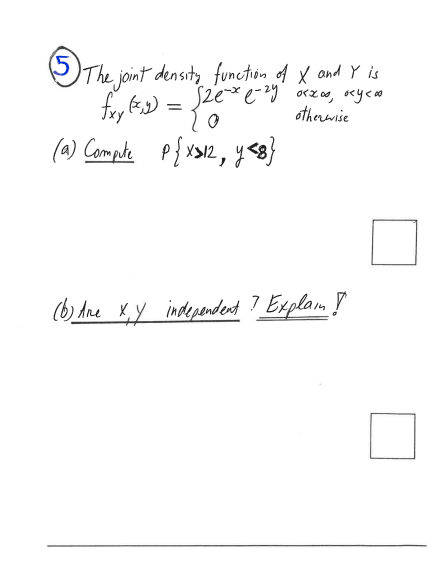 5 The joint density function of X and Y is
f_{XY}(x,y) = { 2e^{-x} e^{-2y}   0<x<∞, 0<y<∞
0   otherwise
(a) Compute P{X>12, Y<8}
(b) Are X, Y independent? Explain!